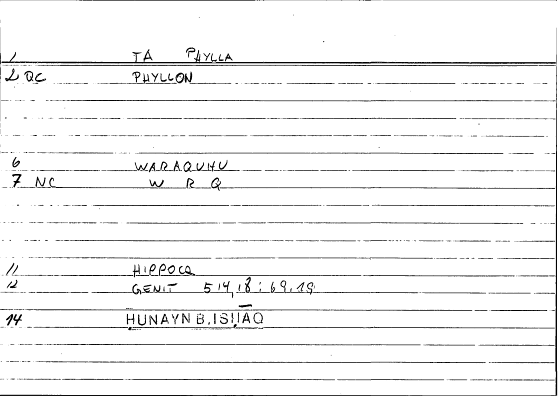 1 TA PHYLLA
2 QC PHYLLON
6 WARAQUHU
7 NC W R Q
11 HIPPOCR
12 GENIT 514,18 : 69,19
14 HUNAYN B. ISḤĀQ